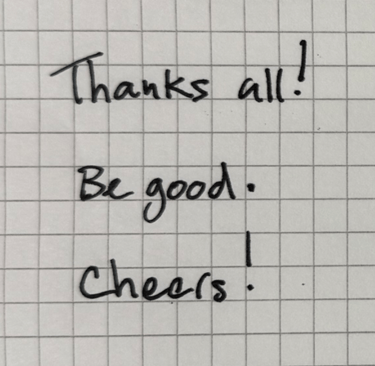 Thanks all!
Be good.
Cheers!